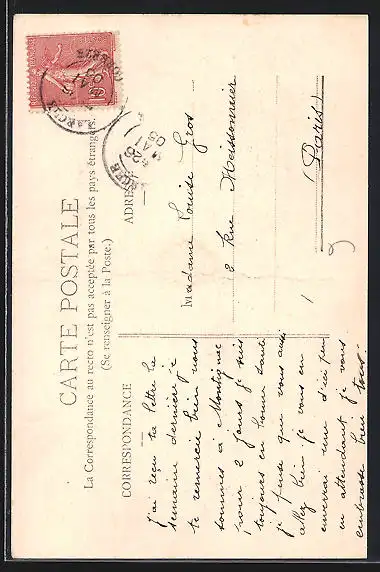 CARTE POSTALE
La Correspondance au recto n'est pas acceptée par tous les pays étrangers.
(Se renseigner à la Poste.)
CORRESPONDANCE
ADRESSE
J'ai reçu ta lettre la
semaine dernière je
te remercie bien nous
sommes à Montignac
pour 2 jours je suis
toujours en bonne santé
je pense que vous aussi
allez bien je vous en
enverrai une d'ici peu
en attendant je vous
embrasse bien tous.
Madame Louise Gros
8 Rue Meissonnier
(Paris)